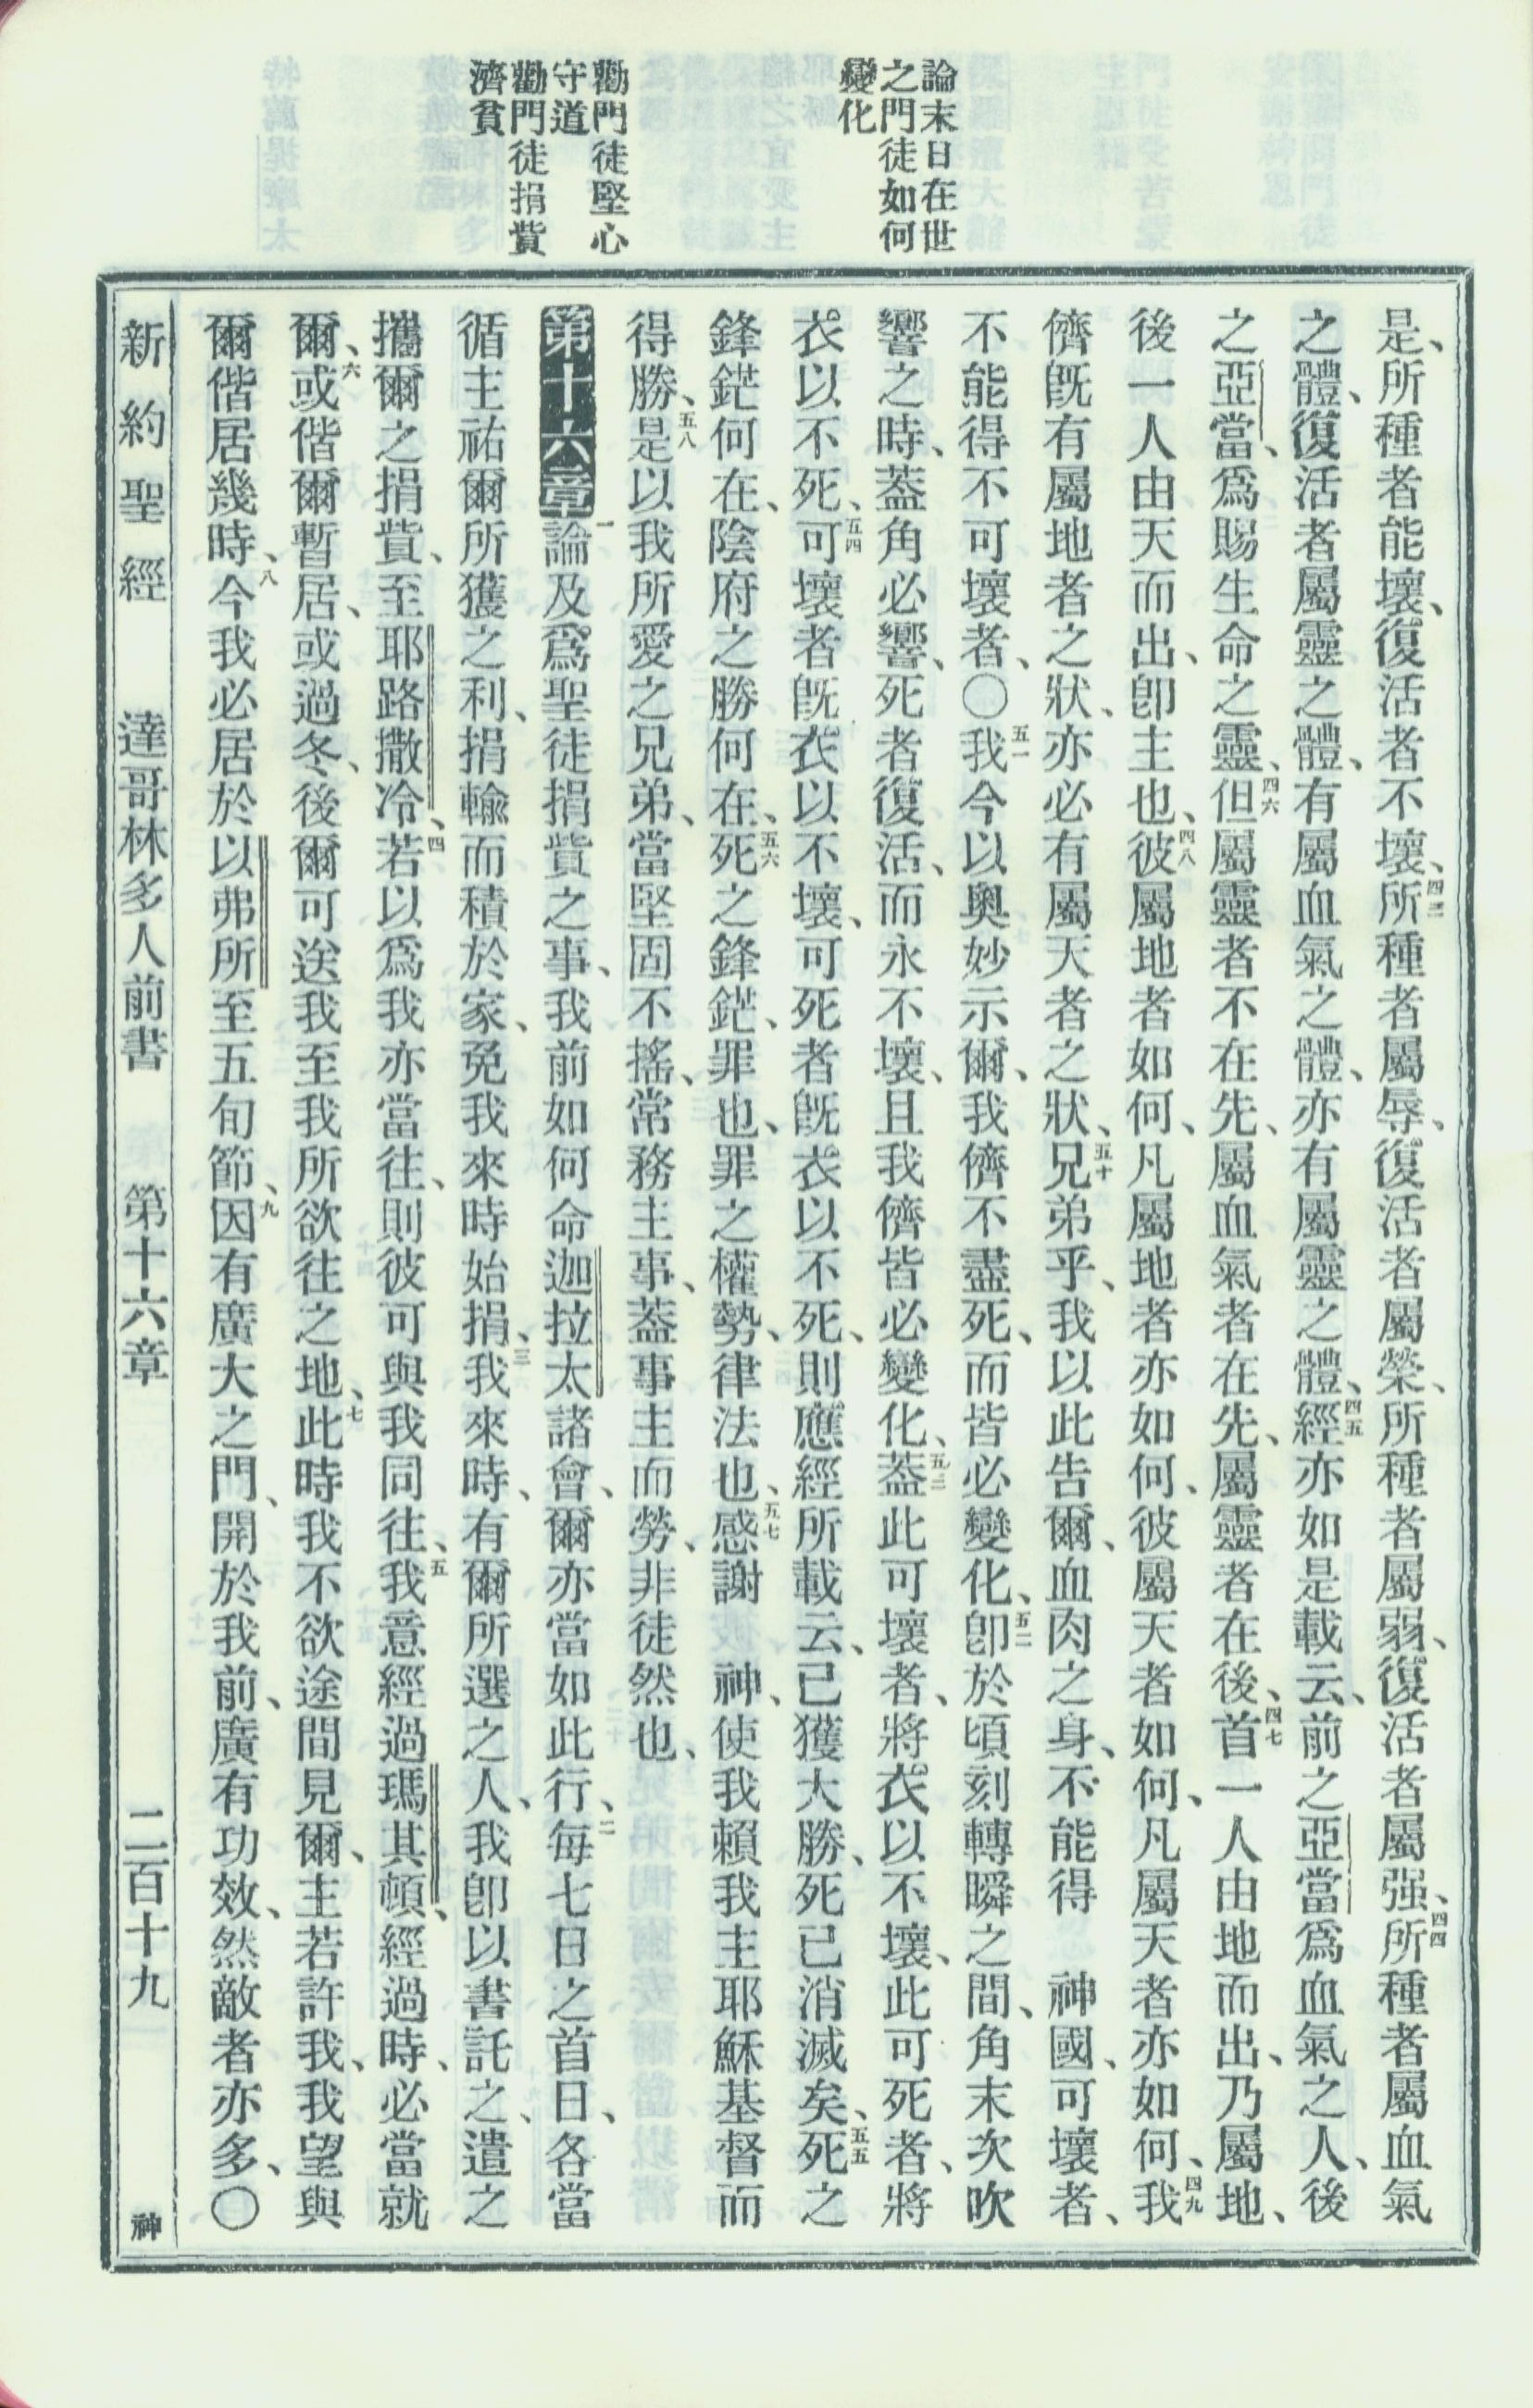 論末日在世
之門徒如何
變化
勸門徒堅心
守道
勸門徒捐貲
濟貧
是、所種者能壞、復活者不壞、四三所種者屬辱、復活者屬榮、所種者屬弱、復活者屬强、四四所種者屬血氣
之體、復活者屬靈之體、有屬血氣之體、亦有屬靈之體、四五經亦如是載云、前之亞當爲血氣之人、後
之亞當、爲賜生命之靈、四六但屬靈者不在先、屬血氣者在先、屬靈者在後、四七首一人由地而出、乃屬地、
後一人由天而出、卽主也、四八彼屬地者如何、凡屬地者亦如何、彼屬天者如何、凡屬天者亦如何、四九我
儕旣有屬地者之狀、亦必有屬天者之狀、五十兄弟乎、我以此告爾、血肉之身、不能得　神國、可壞者、
不能得不可壞者、〇五一我今以奧妙示爾、我儕不盡死、而皆必變化、五二卽於頃刻轉瞬之間、角末次吹
響之時、蓋角必響、死者復活、而永不壞、且我儕皆必變化、五三蓋此可壞者、將衣以不壞、此可死者、將
衣以不死、五四可壞者旣衣以不壞、可死者旣衣以不死、則應經所載云、已獲大勝、死已消滅矣、五五死之
鋒鋩何在、陰府之勝何在、五六死之鋒鋩、罪也、罪之權勢、律法也、五七感謝　神、使我賴我主耶穌基督而
得勝、五八是以我所愛之兄弟、當堅固不搖、常務主事、蓋事主而勞、非徒然也、
第十六章一論及爲聖徒捐貲之事、我前如何命迦拉太諸會、爾亦當如此行、二每七日之首日、各當
循主祐爾所獲之利、捐輸而積於家、免我來時始捐、三我來時、有爾所選之人、我卽以書託之、遣之
攜爾之捐貲、至耶路撒冷、四若以爲我亦當往、則彼可與我同往、五我意經過瑪其頓、經過時、必當就
爾、六或偕爾暫居、或過冬、後爾可送我至我所欲往之地、七此時我不欲途間見爾、主若許我、我望與
爾偕居幾時、八今我必居於以弗所至五旬節、九因有廣大之門、開於我前、廣有功效、然敵者亦多、〇
新約聖經　達哥林多人前書　第十六章　二百十九　神